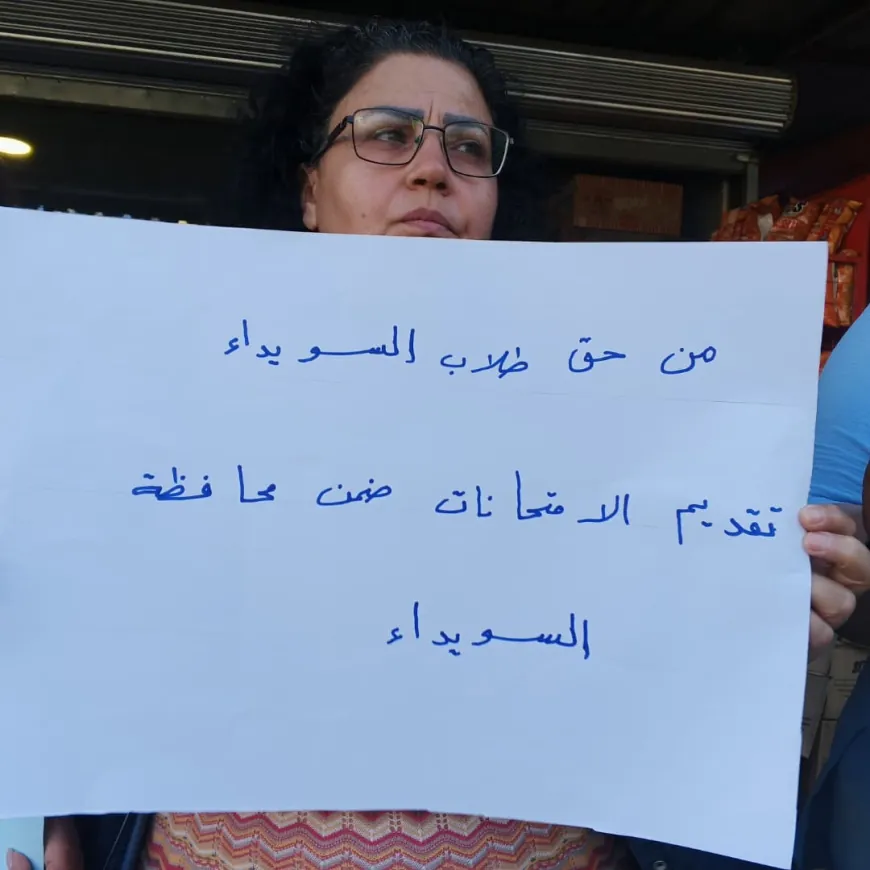 من حق طلاب السويداء
تقديم الامتحانات ضمن محافظة
السويداء